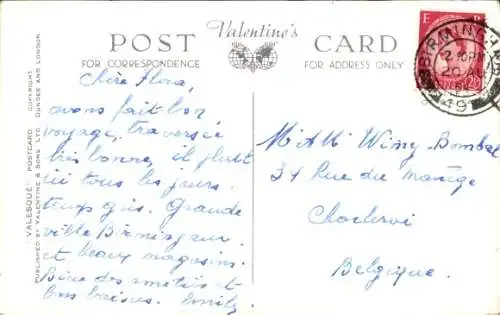 POST Valentine's CARD
FOR CORRESPONDENCE FOR ADDRESS ONLY
"VALESQUE" POSTCARD COPYRIGHT
PUBLISHED BY VALENTINE & SONS LTD. DUNDEE AND LONDON
E R
BIRMINGHAM
49
Chère Flora,
avons fait bon
voyage, traversée
très bonne, il pluit
ici tous les jours.
temps gris. Grande
ville Birmingham
et beaux magasins.
Bien des amitiés et
bons baisers. Emily
M A M Wimy-Bombal
34 Rue du manège
Charleroi
Belgique.